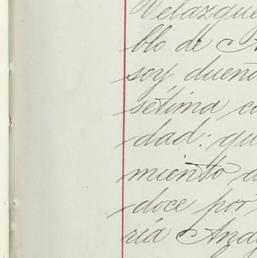 Velazque
blo de A
soy dueño
sétima co
dad: qu
miento a
doce por
ria Ana